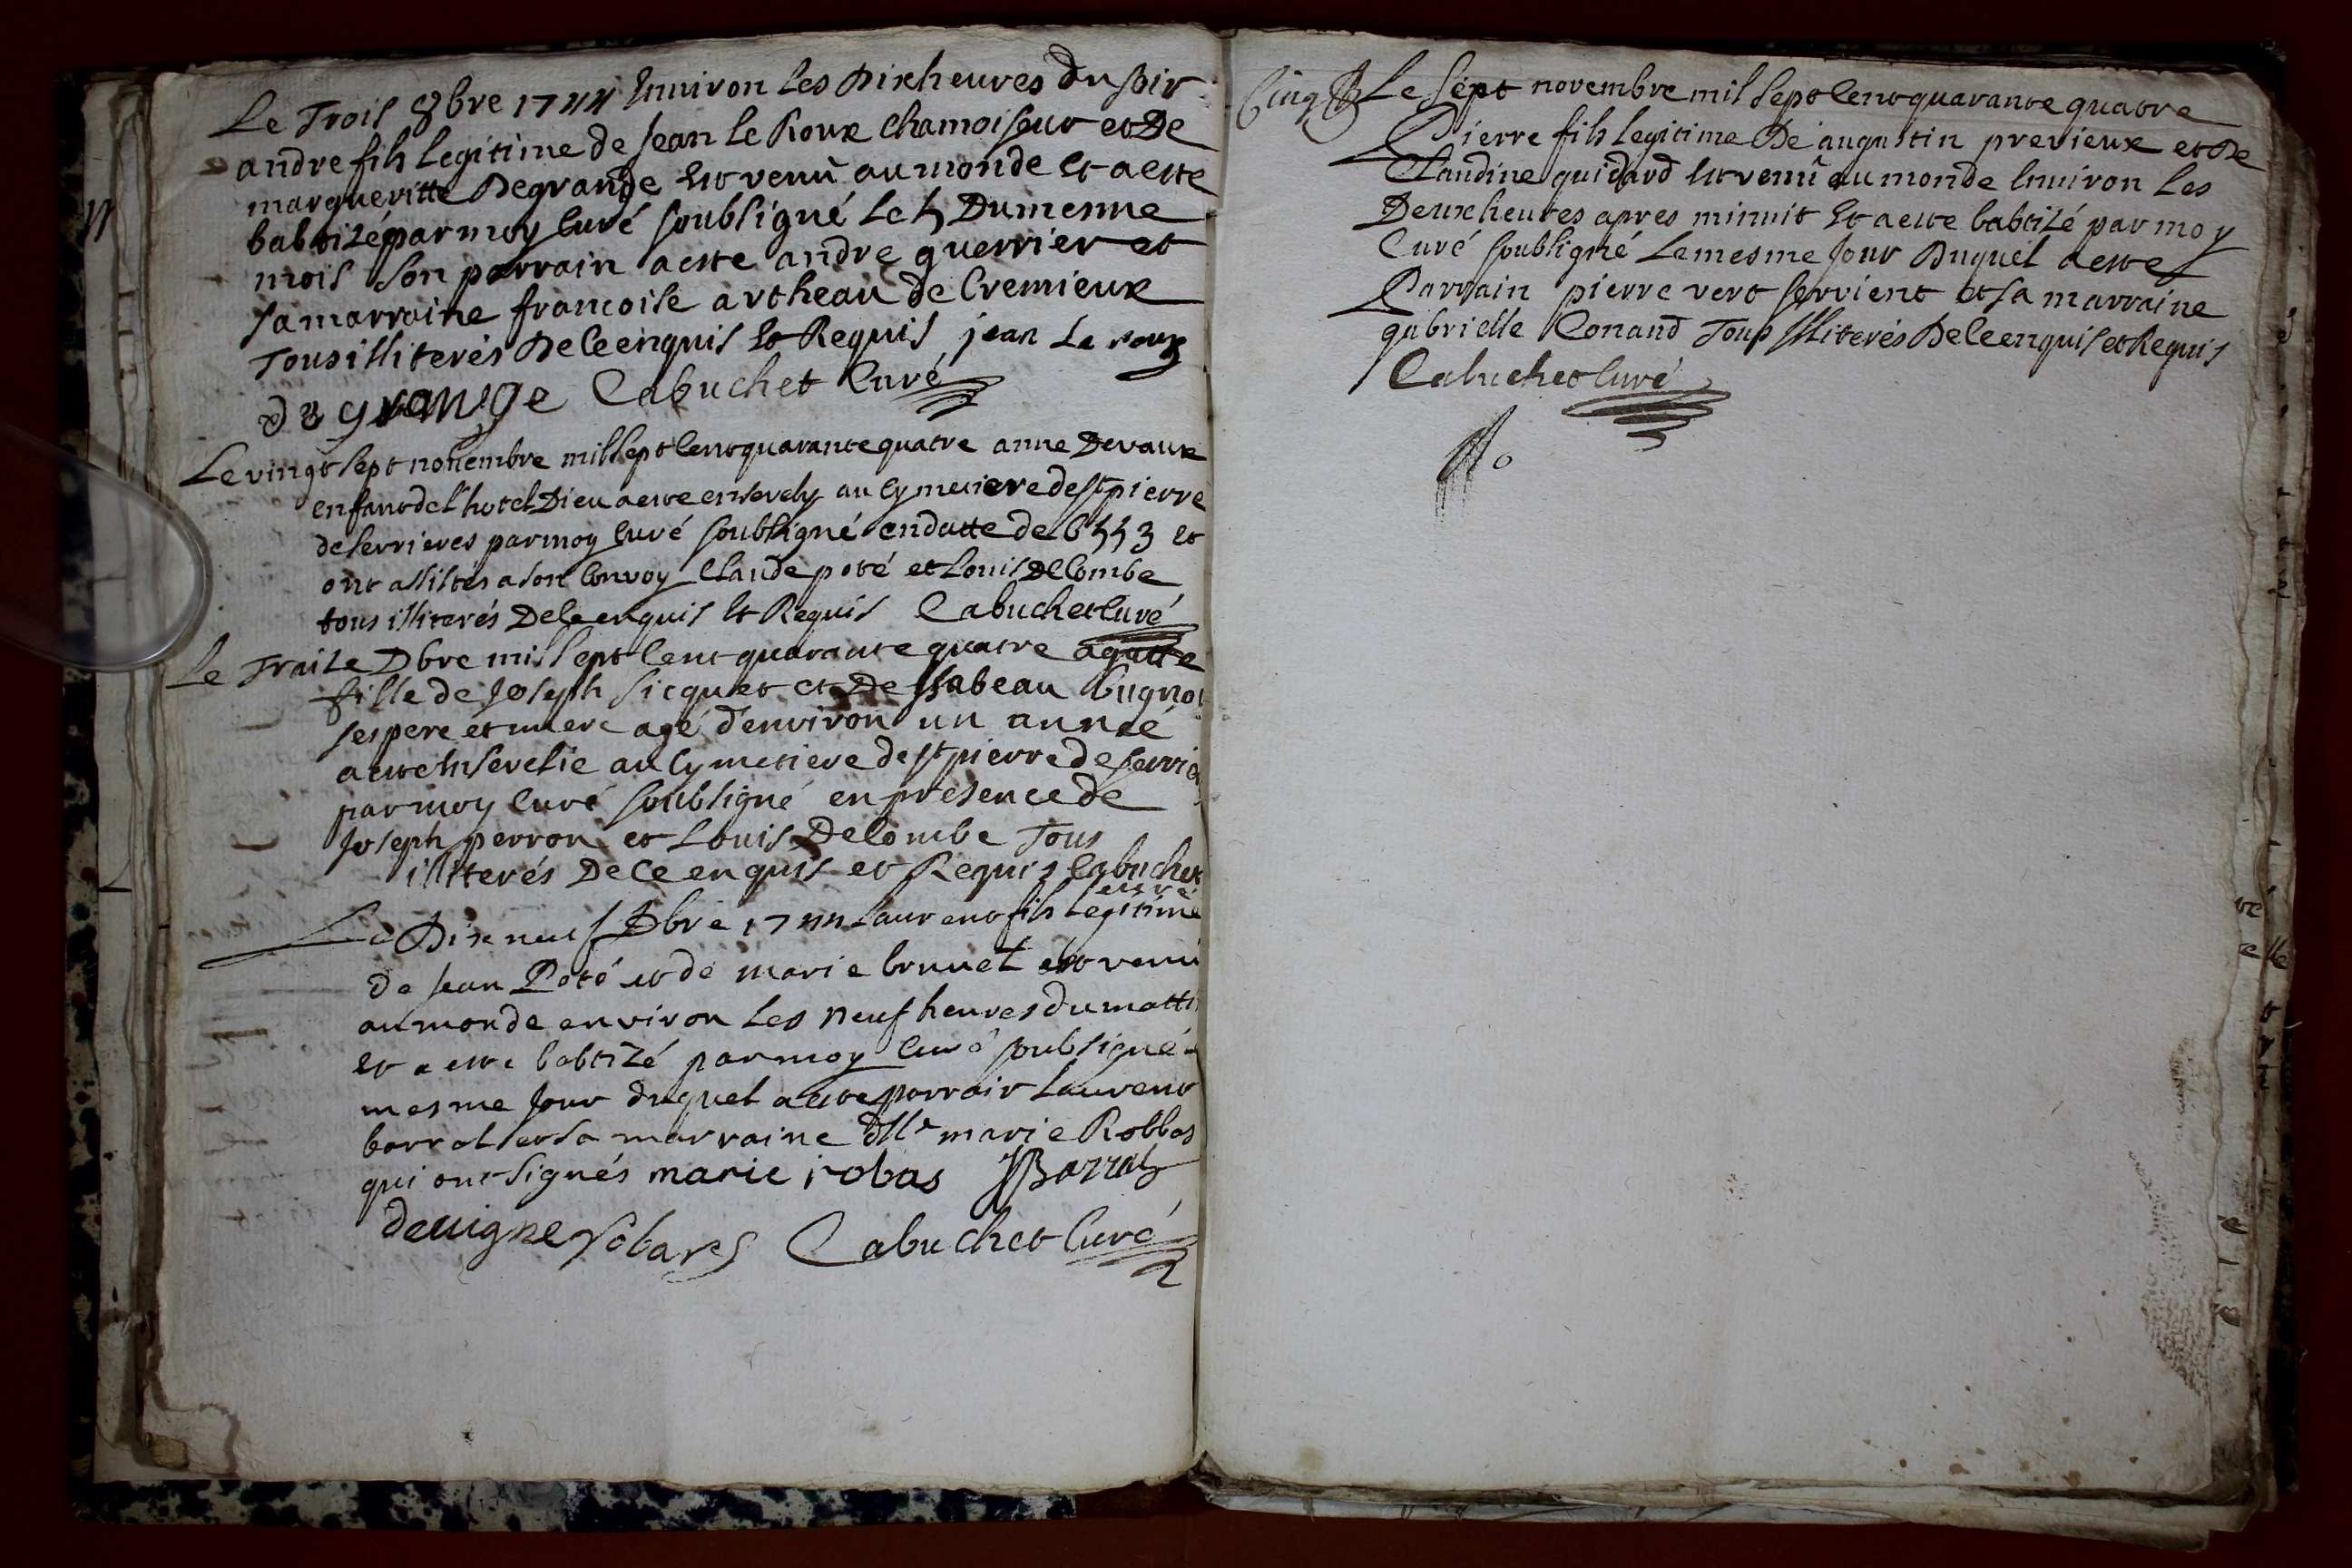 Le Trois 8bre 1744 Environ les Dix heures du soir
andre fils legitime de Jean le Roux chamoiseur et De
margueritte Degrange Est venû au monde Et a este
babtizé par moy Curé soubsigné le 5 Du mesme
mois son parrain a este andre guerrier et
sa marraine francoise artheau de Cremieux
Tous illiterés De ce enquis Et Requis jean Le roux
de grange Cabuchet Curé
Le vingt sept novembre mil sept cent quarante quatre anne Devaux
enfant de l'hotel Dieu a este ensevely au Cymetiere de st pierre
de serrieres par moy Curé soubsigné en datte de 6553 et
ont assistés a son Convoy Claude poté et Louis DeCombe
tous illiterés De ce enquis Et Requis Cabuchet Curé
Le Traize Dbre mil sept cent quarante quatre agatte
fille de Joseph sicquet et De Isabeau
ses pere et mere agé d'environ un année
a este Ensevelie au Cymetiere de st pierre de serrie
par moy Curé soubsigné en presence de
Joseph perron et Louis DeCombe Tous
illiterés De Ce enquis et Requis Cabuchet
curé
Le Dix neuf Dbre 1744 Laurent fils legitime
de Jean Poté et de marie brunet est venu
au monde environ les neuf heures du matti
et a este babtizé par moy Curé soubsigné
mesme Jour duquel a este parrain Laurent
barral et sa marraine dlle marie Robbas
qui ont signés marie robas Barral
devigne robars Cabuchet Curé
Cinq Le sept novembre mil sept Cent quarante quatre
Pierre fils legitime De augustin prerieux et De
Claudine guidard Est venû au monde Environ les
Deux heures apres minuit Et a este babtizé par moy
Curé soubsigné le mesme Jour Duquel a este
Parrain pierre vert servient et sa marraine
gabrielle Conand Tous Illiterés De ce enquis et Requis
Cabuchet Curé